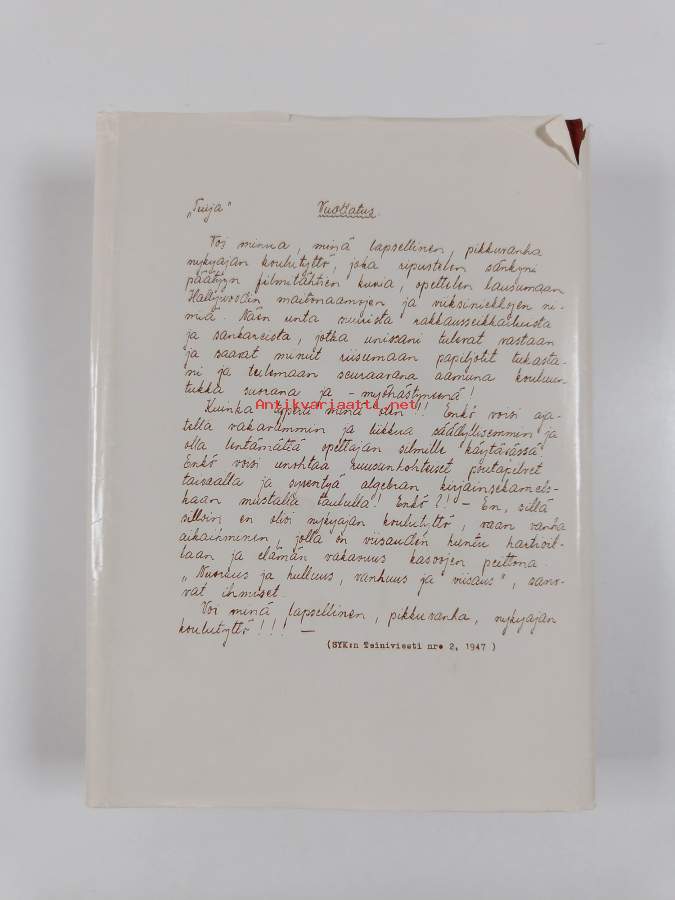 "Tuija" Vuodatus.
Voi minua, minä lapsellinen, pikkuvanha
nykyajan koulutyttö, joka ripustelen sänkyni
päätyyn filmitähtien kuvia, opettelen lausumaan
Hollywoodin maitonaamojen ja viiksiniekkojen ni-
miä. Näen unta suurista rakkausseikkailuista
ja sankareista, jotka unissani tulevat vastaan
ja saavat minut riisumaan papiljotit tukasta-
ni ja tulemaan seuraavana aamuna kouluun
tukka suorana ja - myöhästyneenä!
Kuinka typerä minä olen!! Enkö voisi aja-
tella vakavammin ja liikkua säädyllisemmin ja
olla lentämättä opettajan silmille käytävässä!
Enkö voisi unohtaa ruusunhohteiset poutapilvet
taivaalla ja syventyä algebran kirjainsekamels-
kaan mustalla taululla! Enkö?! - En, sillä
silloin en olisi nykyajan koulutyttö, vaan vanha
aikaihminen, jolla on viisauden huntu hartioil-
laan ja elämän vakavuus kasvojen peittona.
"Nuoruus ja hulluus, vanhuus ja viisaus", sano-
vat ihmiset.
Voi minä lapsellinen, pikkuvanha, nykyajan
koulutyttö!!! -
(SYK:n Teiniviesti nro 2, 1947 )
Antikvariaatti.net